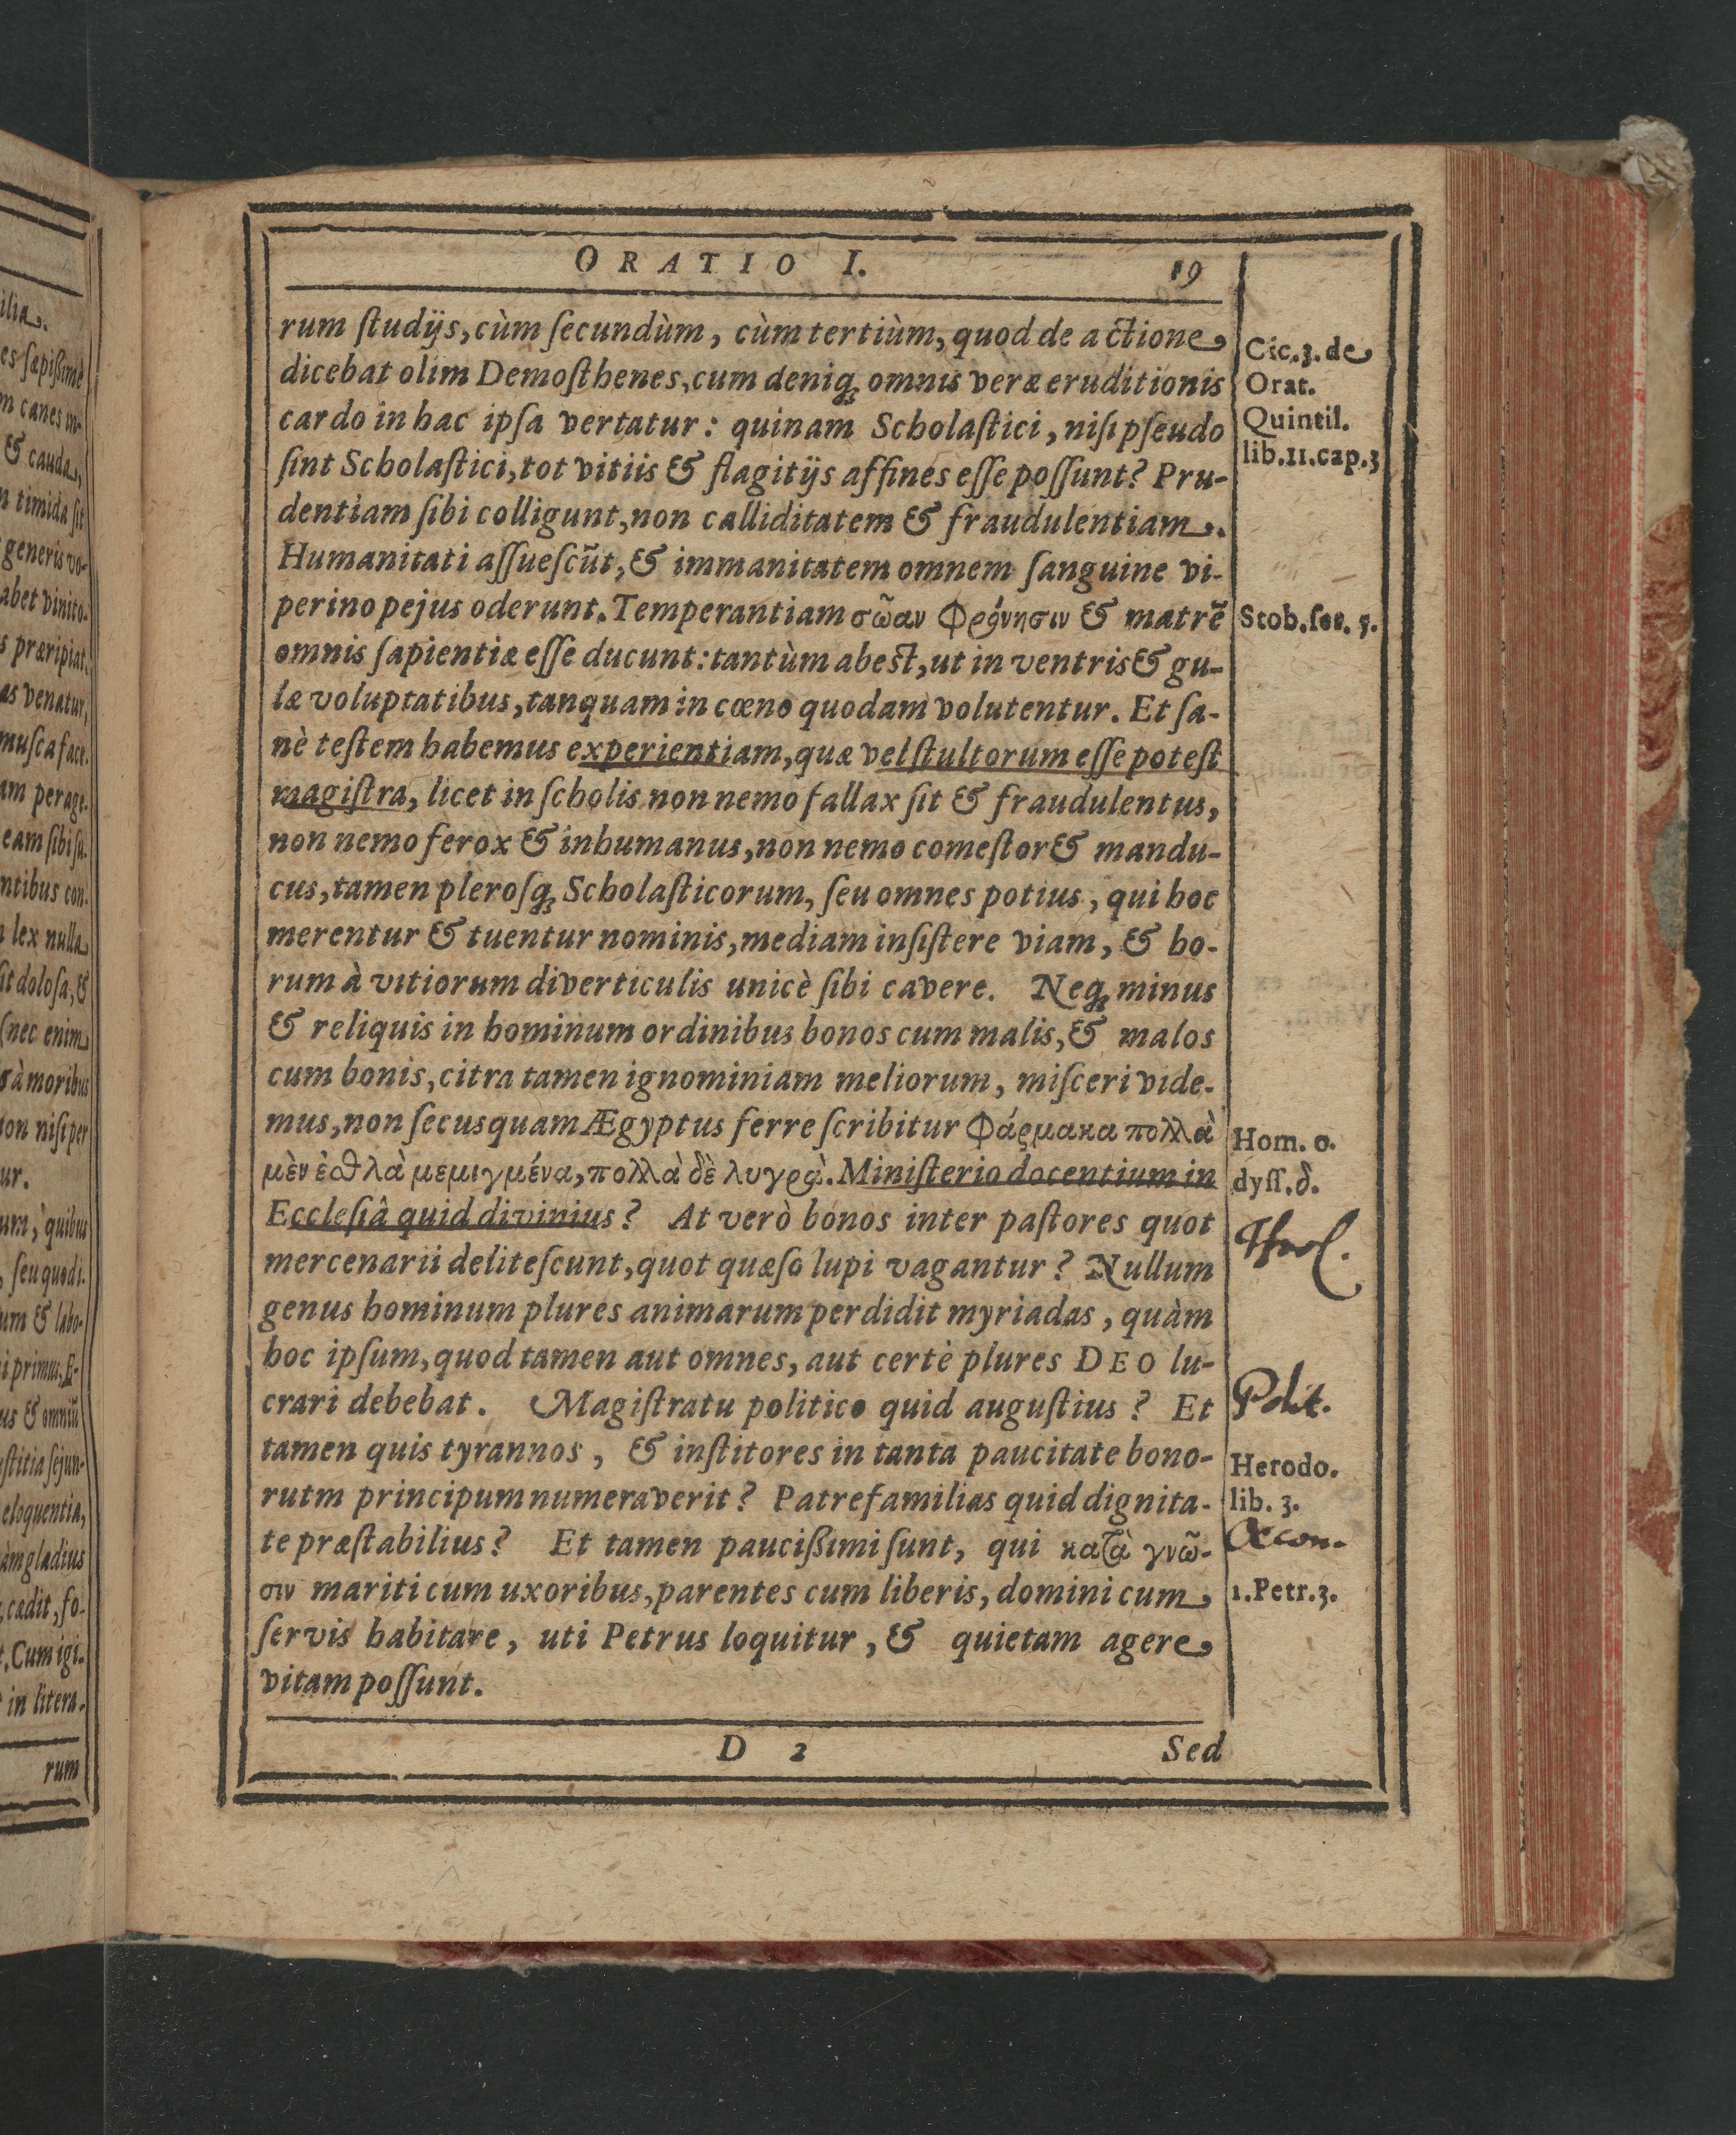 ORATIO I. 19
rum ſtudijs, cùm ſecundùm, cùm tertiùm, quod de actione
dicebat olim Demoſthenes, cum deniq; omnis veræ eruditionis
cardo in hac ipſa vertatur: quinam Scholaſtici, niſi pſeudo
ſint Scholaſtici, tot vitiis & flagitijs affines eſſe poſſunt? Pru-
dentiam ſibi colligunt, non calliditatem & fraudulentiam.
Humanitati aſſueſcũt, & immanitatem omnem ſanguine vi-
perino pejus oderunt. Temperantiam σῶαν Φρόνησιν & matrẽ
omnis ſapientiæ eſſe ducunt: tantùm abest, ut in ventris & gu-
læ voluptatibus, tanquam in cœno quodam volutentur. Et ſa-
nè teſtem habemus experientiam, quæ vel ſtultorum eſſe poteſt
magiſtra, licet in ſcholis non nemo fallax ſit & fraudulentus,
non nemo ferox & inhumanus, non nemo comeſtor & mandu-
cus, tamen pleroſq; Scholaſticorum, ſeu omnes potius, qui hoc
merentur & tuentur nominis, mediam inſiſtere viam, & ho-
rum à vitiorum diverticulis unicè ſibi cavere. Neq; minus
& reliquis in hominum ordinibus bonos cum malis, & malos
cum bonis, citra tamen ignominiam meliorum, miſceri vide-
mus, non ſecus quam Ægyptus ferre ſcribitur Φάρμακα πολλὰ
μὲν ἐσθλὰ μεμιγμένα, πολλὰ δὲ λυγρὰ. Miniſterio docentium in
Eccleſiâ quid divinius? At verò bonos inter paſtores quot
mercenarii deliteſcunt, quot quæſo lupi vagantur? Nullum
genus hominum plures animarum perdidit myriadas, quàm
hoc ipſum, quod tamen aut omnes, aut certè plures DEO lu-
crari debebat. Magiſtratu politico quid auguſtius? Et
tamen quis tyrannos, & inſtitores in tanta paucitate bono-
rutm principum numeraverit? Patrefamilias quid dignita-
te præſtabilius? Et tamen paucißimi ſunt, qui κατὰ γνῶ-
σιν mariti cum uxoribus, parentes cum liberis, domini cum
ſervis habitare, uti Petrus loquitur, & quietam agere
vitam poſſunt.
D 2 Sed
Cic. 3. de
Orat.
Quintil.
lib. 11. cap. 3
Stob. ſer. 5.
Hom. o.
dyſſ. δ.
Theol.
Polit.
Herodo.
lib. 3.
Oecon.
1. Petr. 3.